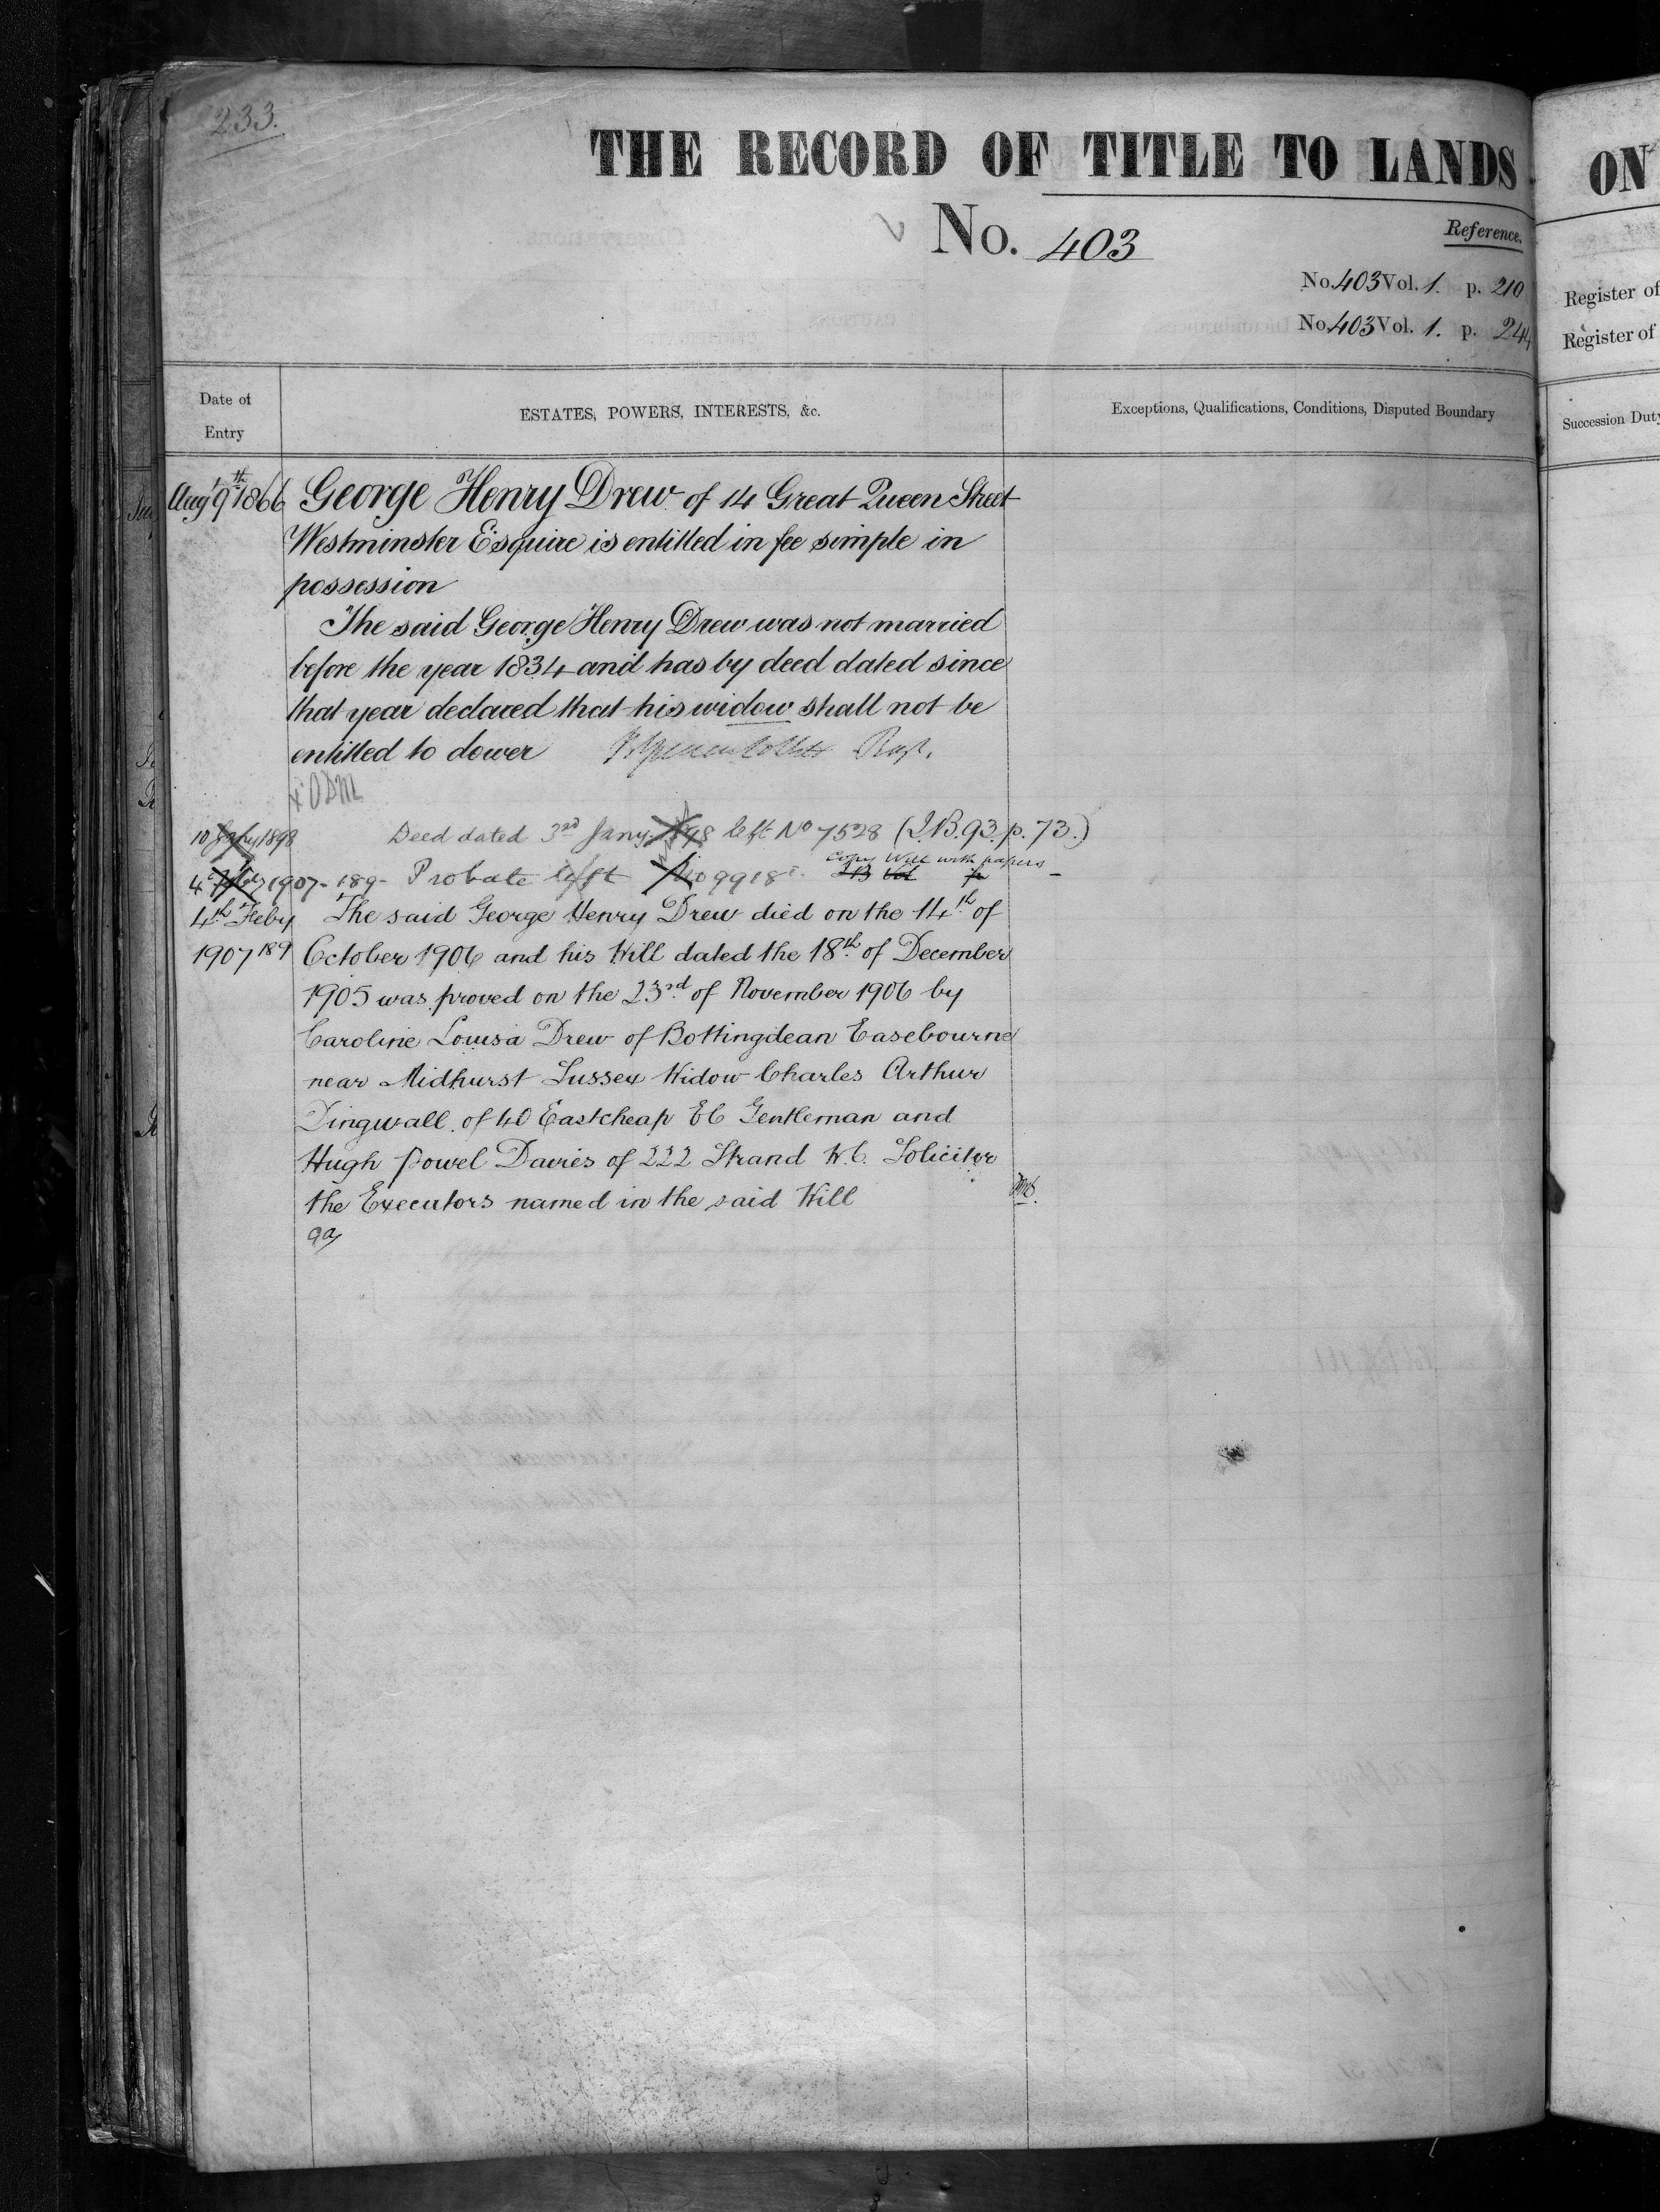 233.
THE RECORD OF TITLE TO LANDS
ON
No. 403
Reference.
No. 403 Vol. 1. p. 210
Register of
No. 403 Vol. 1. p. 244
Register of
Date of
Entry
ESTATES, POWERS, INTERESTS, &c.
Exceptions, Qualifications, Conditions, Disputed Boundary
Succession Duty
Augt 9th 1866 George Henry Drew of 14 Great Queen Street
Westminster Esquire is entitled in fee simple in
possession
The said George Henry Drew was not married
before the year 1834 and has by deed dated since
that year declared that his widow shall not be
entitled to dower
10 Jany 1898 Deed dated 3rd Jany 1898 left No 7528 (I.B. 93. p. 73.)
Copy Will with papers
4 Feby 1907 - 189 - Probate left No 9918
4th Feby The said George Henry Drew died on the 14th of
1907 189 October 1906 and his Will dated the 18th of December
1905 was proved on the 23rd of November 1906 by
Caroline Louisa Drew of Bottingdean Easebourne
near Midhurst Sussex Widow Charles Arthur
Dingwall of 40 Eastcheap EC Gentleman and
Hugh Powel Davies of 222 Strand W.C. Solicitor
the Executors named in the said Will